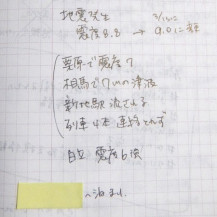 地震発生
震度8.8 → 9.0に訂
栗原で震度7
相馬で7mの津波
新地駅流される
列車4本連絡とれず
白立 震度6強
へ泊まり